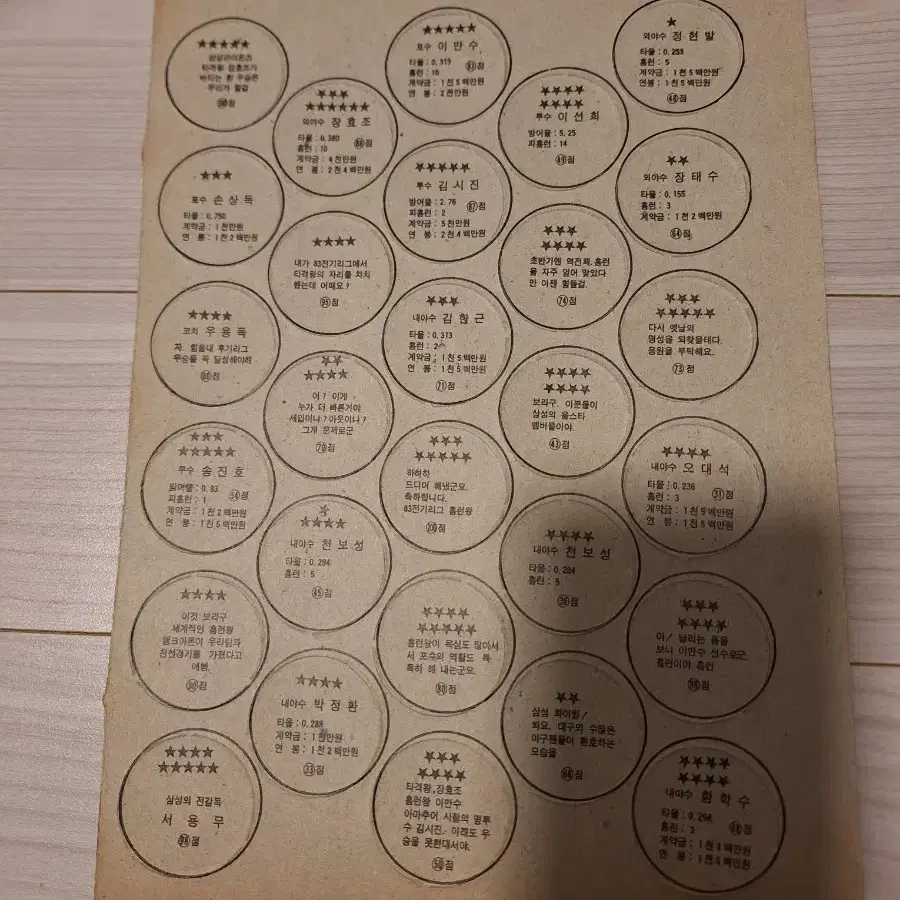 ★★★★★
삼성라이온즈
타격왕 장효조가
우리가 할걸
★★★★★
포수 이만수
타율:0.313
홈런:16
계약금:1천5백만원
연봉:2천만원
★
외야수 정현발
타율:0.253
홈런:5
계약금:1천5백만원
연봉:1천5백만원
㊽점
★★★
★★★★★★
외야수 장효조
타율:0.380
홈런:10
계약금:4천만원
연 봉:2천4백만원
★★★★
★★★★
투수 이선희
방어율:5.25
피홈런:14
㊾점
★★★
포수 손상득
타율:0.750
계약금:1천만원
연 봉:1천2백만원
★★★★★
투수 김시진
방어율:2.76
피홈런:2
계약금:5천만원
연 봉:2천4백만원
87점
★★
외야수 장태수
타율:0.155
홈런:3
계약금:1천2백만원
64점
★★★★
내가 83전기리그에서
타격왕의 자리를 차지
했는데 어때요?
95점
★★★
★★★★
초반기엔 역전패.홈런
을 자주 얻어 맞았다
만 이젠 힘들걸.
74점
★★★★
코치 우용득
자. 힘을내 후기리그
우승을 꼭 달성해야해
★★★
내야수 김한근
타율:0.313
홈런:2
계약금:1천5백만원
연 봉:1천5백만원
71점
★★★
★★★★★
다시 옛날의
명성을 되찾을테다.
응원을 부탁해요.
73점
★★
★★★★
어? 이게
누가 더 빠른거야
세입이냐?아웃이냐?
그게 문제로군
70점
★★★★
★★★★
보라구. 이분들이
삼성의 올스타
멤버들이야.
㊸점
★★★
★★★★★
투수 송진호
방어율:0.93
피홈런:1
계약금:1천2백만원
연 봉:1천5백만원
★★★
★★★★★
하하하
드디어 해냈군요.
축하합니다.
83전기리그 홈런왕
★★★★
내야수 오대석
타율:0.236
홈런:3
계약금:1천5백만원
연 봉:1천5백만원
㉛점
★
★★★★
내야수 천보성
타율:0.284
홈런:5
㊺점
★★★★
내야수 천보성
타율:0.284
홈런:5
★★★★
이것 보라구
세계적인 홈런왕
행크아론이 우리팀과
친선경기를 가졌다고
에헴.
★★★★
★★★★★
홈런왕이 욕심도 많아서
서 포수의 역활도 톡
톡히 해 내는군요.
80점
★★★
★★★★
야! 날리는 폼을
보니 이만수 선수로군.
홈런이야 홈런
★★★★
내야수 박정환
타율:0.288
계약금:1천만원
연 봉:1천2백만원
㉝점
★★
삼성 화이팅!
봐요. 대구의 수많은
야구팬들이 환호하는
모습을
★★★★
★★★★★
삼성의 전감독
서 용 무
★★★
★★★★
타격왕.장효조
홈런왕 이만수
아마추어 시절의 명투
수 김시진. 이래도 우
승을 못한대서야.
㊿점
★★★★
★★★★
내야수 함학수
홈런:3
계약금:1천8백만원
연 봉:1천5백만원